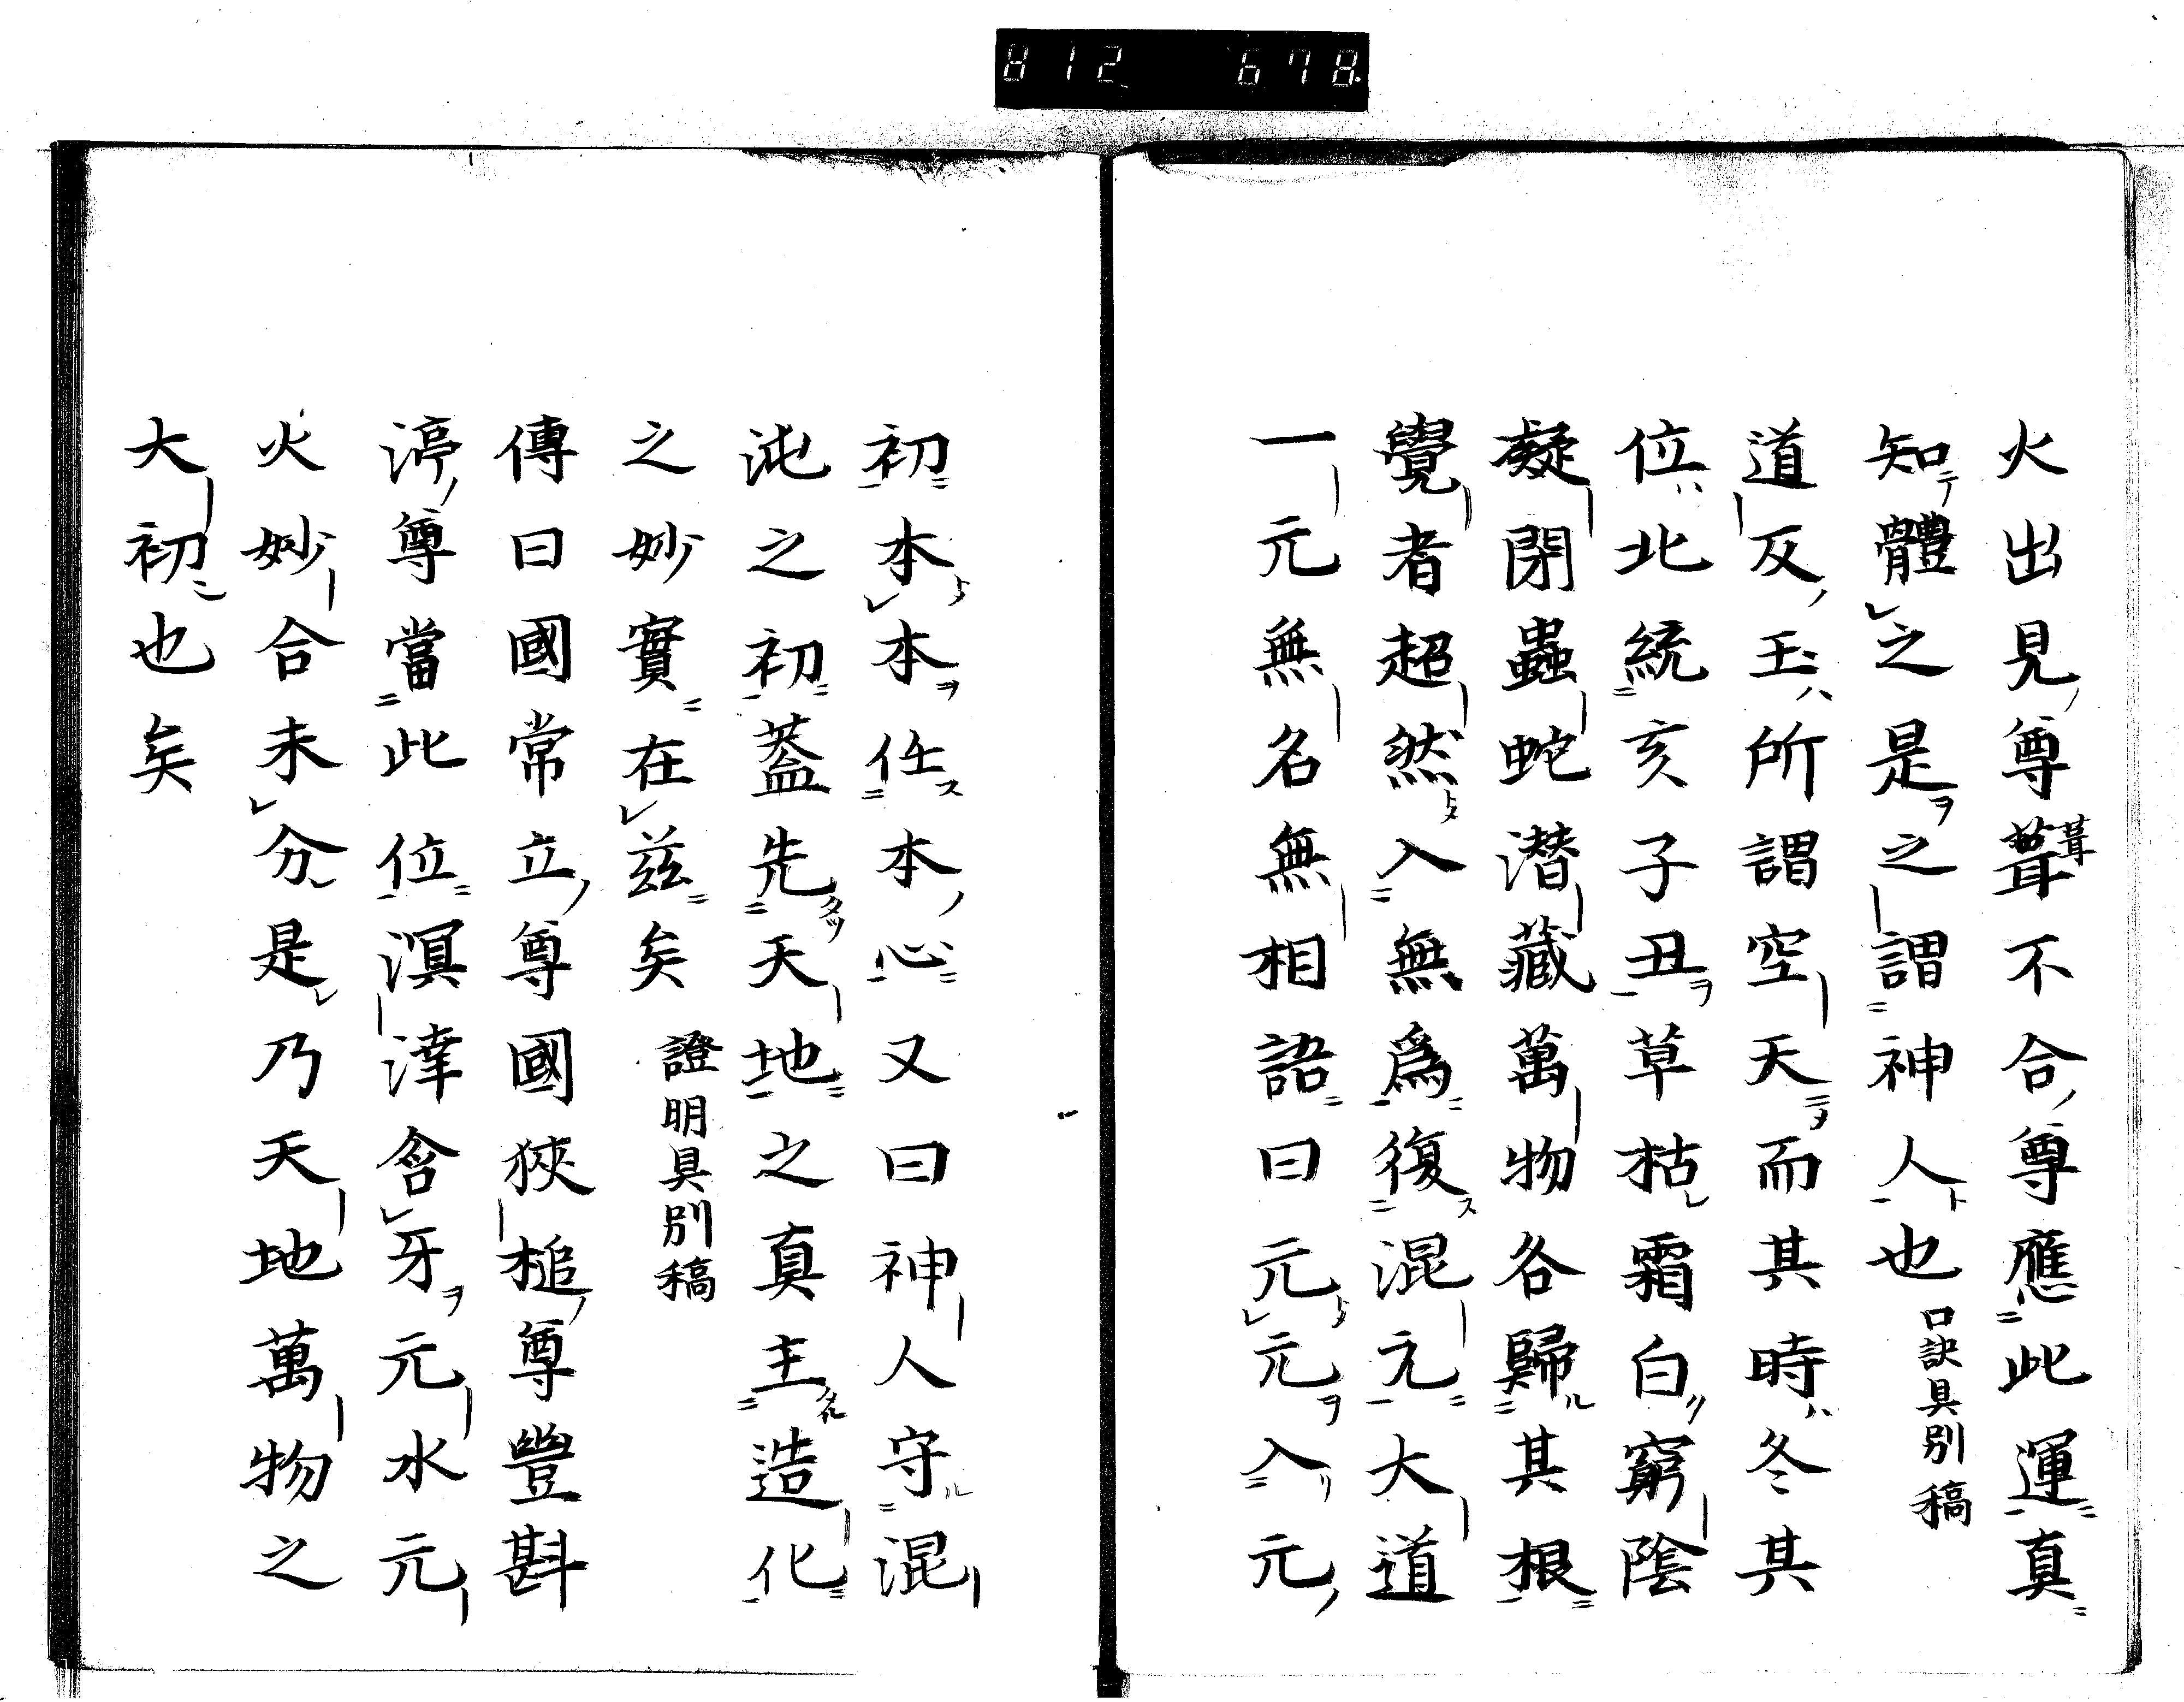 812 678
火出見尊葺不合尊應此運真
知體之是之謂神人也口訣具別稿
道反玉所謂空天而其時冬其
位北統亥子丑草枯霜白窮陰
凝閉蟲蛇潛藏萬物各歸其根
覺者超然入無為復混元大道
一元無名無相語曰元元入元
初本本任本心又曰神人守混
沌之初蓋先天地之真主造化
之妙實在茲矣證明具別稿
傳曰國常立尊國狹槌尊豐斟
渟尊當此位溟涬含牙元水元
火妙合未分是乃天地萬物之
大初也矣